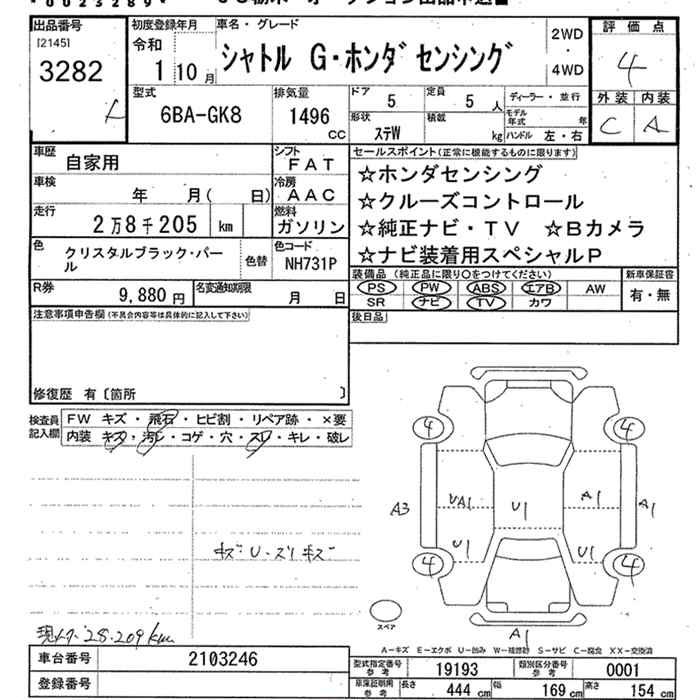 *0023289*
出品番号 [2145] 3282
初度登録年月 令和 1 10月
車名・グレード シャトル G・ホンダセンシング
2WD・4WD
評価点 4
外装 内装
C A
型式 6BA-GK8
排気量 1496 CC
ドア 5
定員 5 人
形状 ステW
積載 kg
ディーラー・並行
モデル年式 年
ハンドル 左・右
車歴 自家用
シフト FAT
車検 年 月( 日)
冷房 AAC
走行 2万8千205 km
燃料 ガソリン
色 クリスタルブラック・パール
色替
色コード NH731P
R券 9,880円
名変通知期限 月 日
セールスポイント(正常に機能するものに限ります)
☆ホンダセンシング
☆クルーズコントロール
☆純正ナビ・TV ☆Bカメラ
☆ナビ装着用スペシャルP
装備品 (純正品に限り○をつけてください)
PS PW ABS エアB AW
SR ナビ TV カワ
新車保証書 有・無
後日品
注意事項申告欄(不具合内容等は具体的に記入して下さい)
修復歴 有〔箇所 〕
検査員記入欄
FW キズ・飛石・ヒビ割・リペア跡・×要
内装 キズ・汚レ・コゲ・穴・スレ・キレ・破レ
キズ U・スリキズ
4 4
A3 UA1 U1 A1 A1
U1 U1
4 4
スペア
A1
現メタ 28.209km
A−キズ E−エクボ U−凹み W−補修跡 S−サビ C−腐食 XX−交換済
車台番号 2103246
登録番号
型式指定番号 参考 19193
類別区分番号 参考 0001
車庫証明用 参考 長さ 444 cm 幅 169 cm 高さ 154 cm